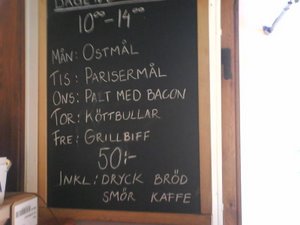 10⁰⁰-14⁰⁰
MÅN: OSTMÅL
TIS: PARISERMÅL
ONS: PALT MED BACON
TOR: KÖTTBULLAR
FRE: GRILLBIFF
50:-
INKL: DRYCK BRÖD
SMÖR KAFFE